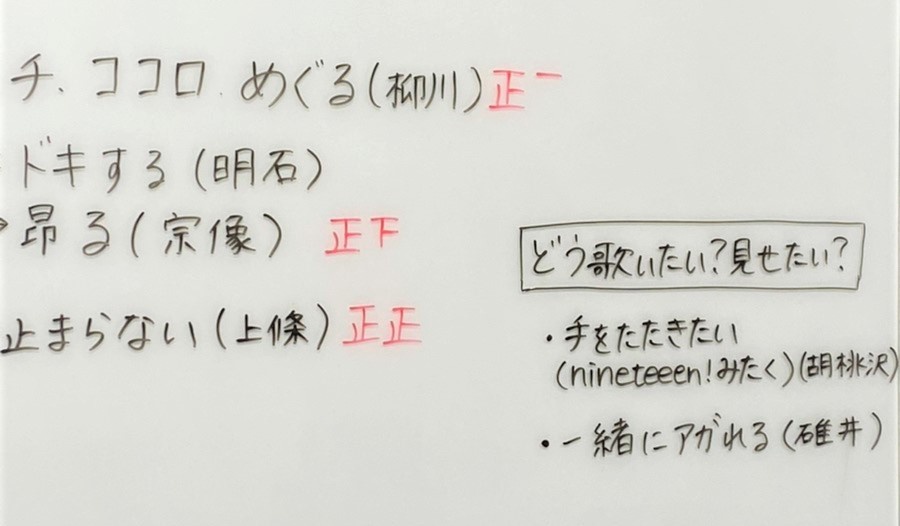 チ、ココロ、めぐる(柳川)正一
ドキする(明石)
昂る(宗像) 正下
止まらない(上條)正正
どう歌いたい?見せたい?
・手をたたきたい
(nineteeen!みたく)(胡桃沢)
・一緒にアガれる(碓井)